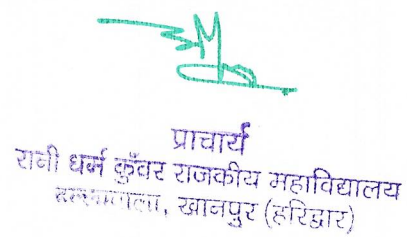 प्राचार्य
रानी धर्म कुँवर राजकीय महाविद्यालय
खानपुर (हरिद्वार)